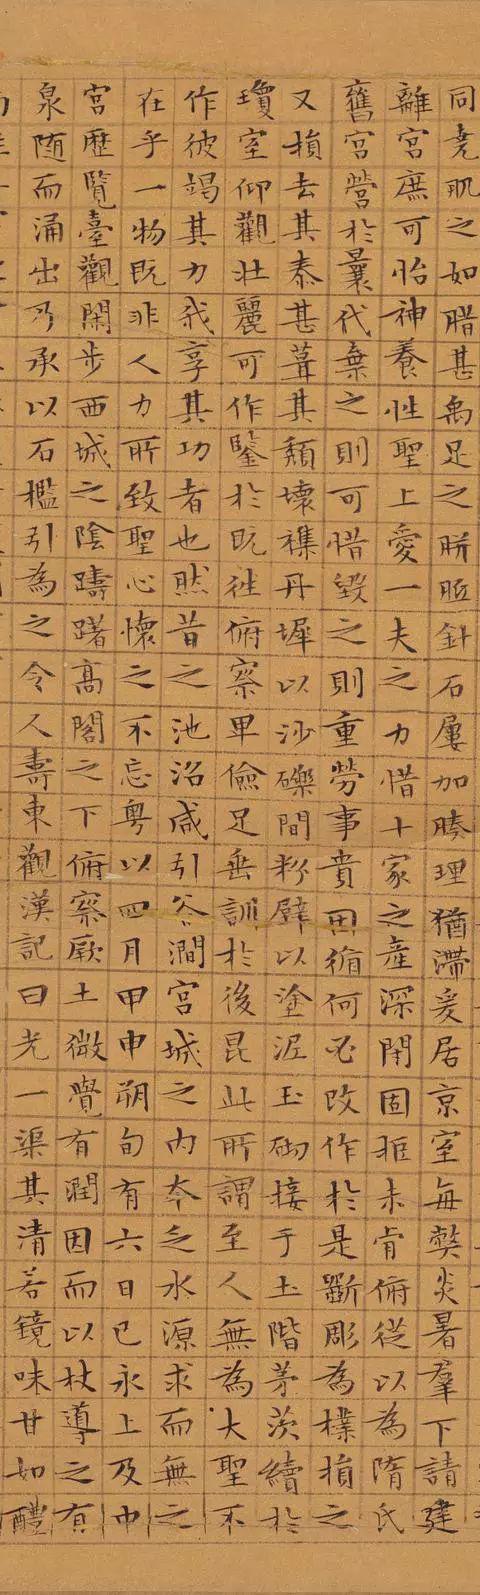 同堯肌之如腊甚禹足之胼胝針石屢加腠理猶滯爰居京室每弊炎暑羣下請建
離宮庶可怡神養性聖上愛一夫之力惜十家之產深閉固拒未肯俯從以為隋氏
舊宮營於曩代棄之則可惜毀之則重勞事貴因循何必改作於是斲彫為樸損之
又損去其泰甚葺其頹壞襍丹墀以沙礫間粉壁以塗泥玉砌接于土階茅茨續於
瓊室仰觀壯麗可作鑒於既往俯察卑儉足垂訓於後昆此所謂至人無為大聖不
作彼竭其力我享其功者也然昔之池沼咸引谷澗宮城之內本乏水源求而無之
在乎一物既非人力所致聖心懷之不忘粤以四月甲申朔旬有六日己亥上及中
宮歷覽臺觀閑步西城之陰躊躇高閣之下俯察厥土微覺有潤因而以杖導之有
泉随而涌出乃承以石檻引為之令人壽東觀漢記曰光一渠其清若鏡味甘如醴